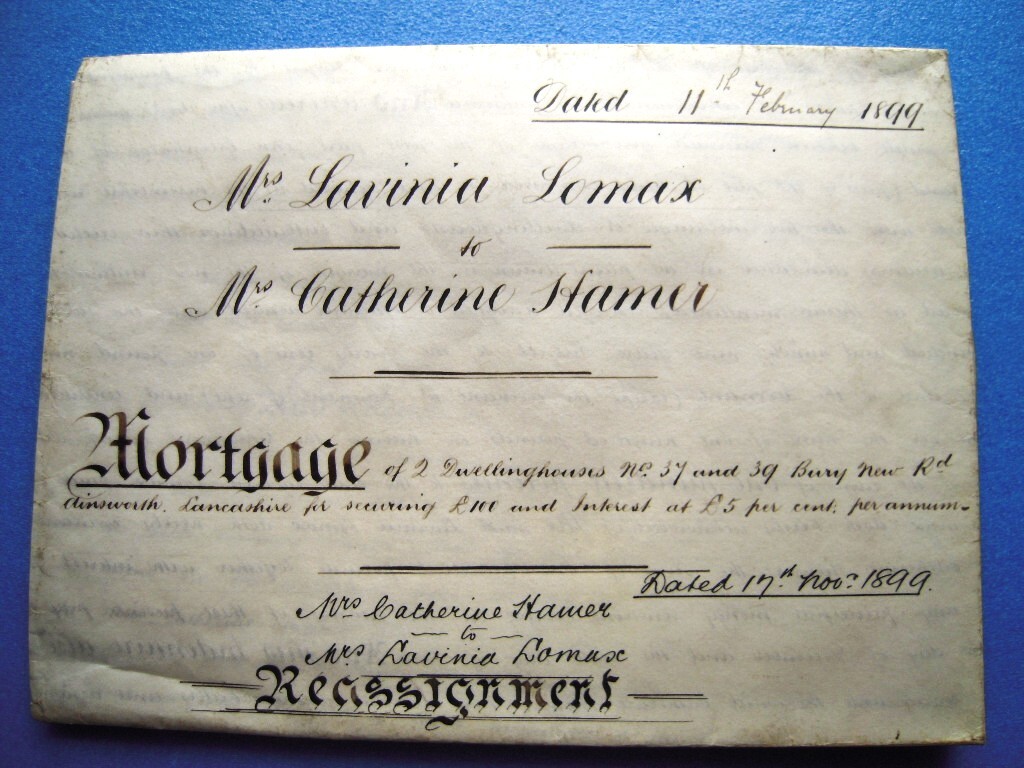 Dated 11th February 1899
Mrs Lavinia Lomax
to
Mrs Catherine Hamer
Mortgage of 2 Dwellinghouses No. 37 and 39 Bury New Rd
Ainsworth. Lancashire for securing £100 and Interest at £5 per cent. per annum.
Dated 17th Novr. 1899.
Mrs Catherine Hamer
to
Mrs Lavinia Lomax
Reassignment